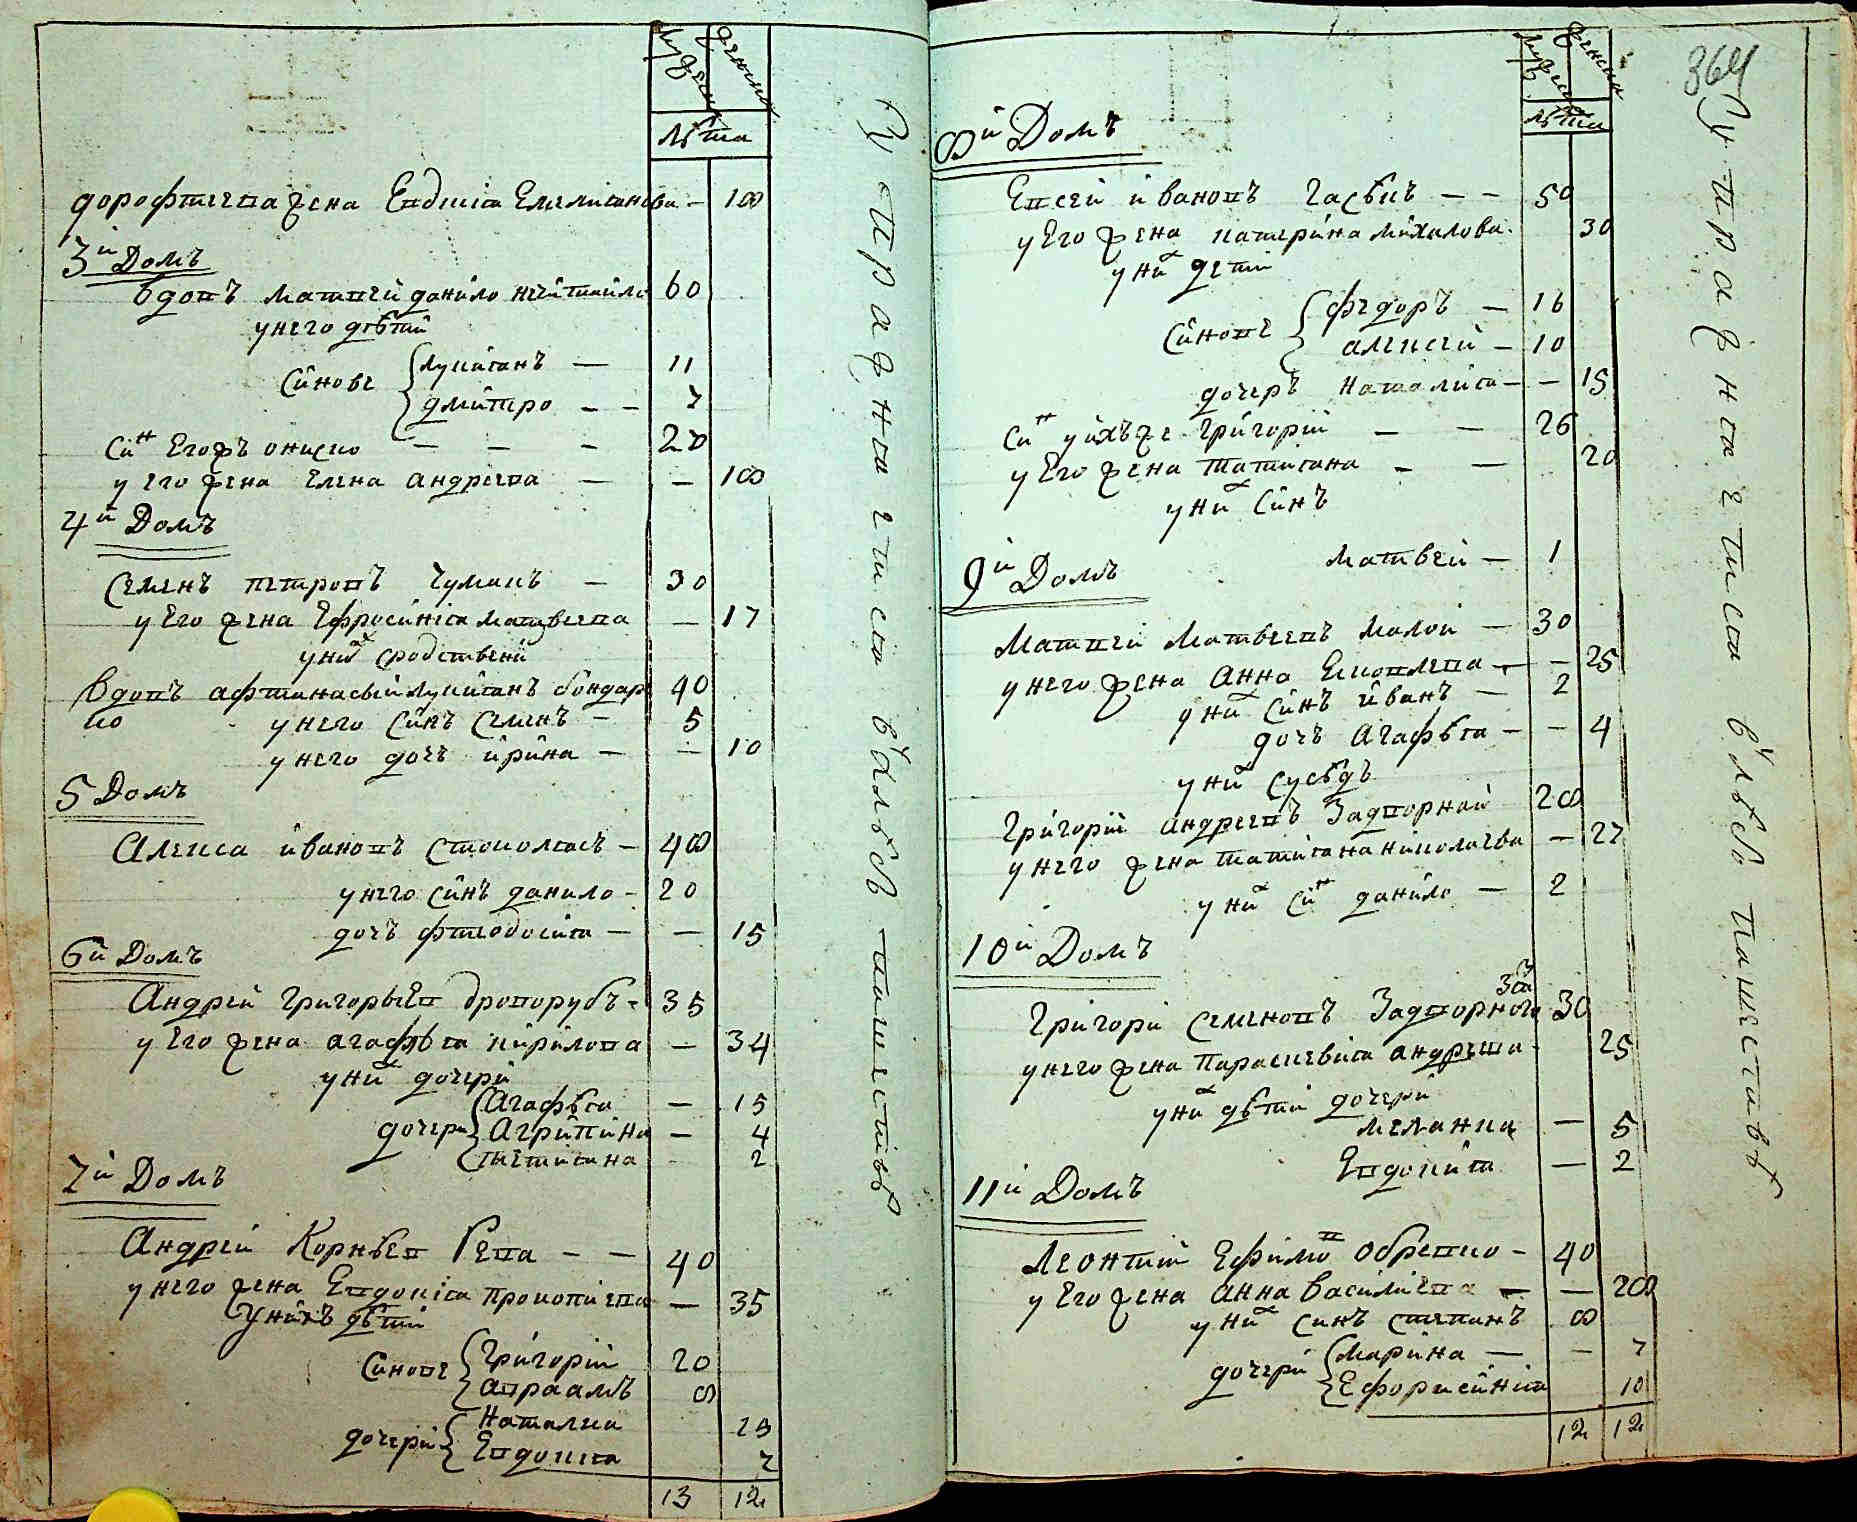 мужеск женска
лѣта
дорофтиева жена Евдикіа Емелианова — 18
3й Домъ
вдовъ матвей данило нечитайло 60
у него дѣтий
Синове
лукианъ — 11
дмитро — — 7
Сiн Егоръ ониско — — — 20
у Его жена Елена андреева — — 18
4й Домъ
Семенъ петровъ Чумакъ — 30
у Его жена Ефросиніа матвеева — 17
у них сродствени
вдовъ афтанасый лукианъ бондар 40
ко у него Синъ Семенъ — 5
у него дочъ ирина — — 10
5 Домъ
Алекса ивановъ — 48
у него Синъ данило — 20
дочъ фтеодосиіа — — 15
6й Домъ
Андрей Григорыев дроворубъ — 35
у Его жена агафѣіа кирилова — 34
у них дочери
дочери
Агафѣіа — 15
Агрипина — 4
татиіана 2
7й Домъ
Андрей Корнѣев Репа — — 40
у него жена Евдокіа прокопиева — 35
У нихъ дѣтий
Синове
Григорий 20
авраамъ 8
дочери
Наталка 13
Евдокіа 7
13 12
мужеск женска
лѣта
364
8й Домъ
Евсей ивановъ Гасѣнъ — — 50
у Его жена катерина михалова 30
у них дети
Синове
федоръ — 16
алексей — 10
дочеръ наталиіа — — 15
Сiн у ихъ же Григорий — — 26
у Его жена татиіана — — 20
у них Синъ
матвей — 1
9й Домъ
Матвей Матвеевъ малой — 30
у него жена Анна Яковлева — — 25
у них Синъ иванъ — 2
дочъ Агафѣіа — — 4
у них сусѣдъ
Григорий андреевъ Задворной 28
у него жена татиіана николаева — 27
у них Сiн данило — 2
10й Домъ
Григори Семеновъ Задворного 30
у него жена параскевиіа андреева 25
у них дѣтий дочери
меланка — 5
Евдокиіа — 2
11й Домъ
Леонтий Ефимов — 40
у Его жена анна василиева — — 28
у них синъ степанъ 8
дочери
Марина — — 7
Ефорисиніа 10
12 12